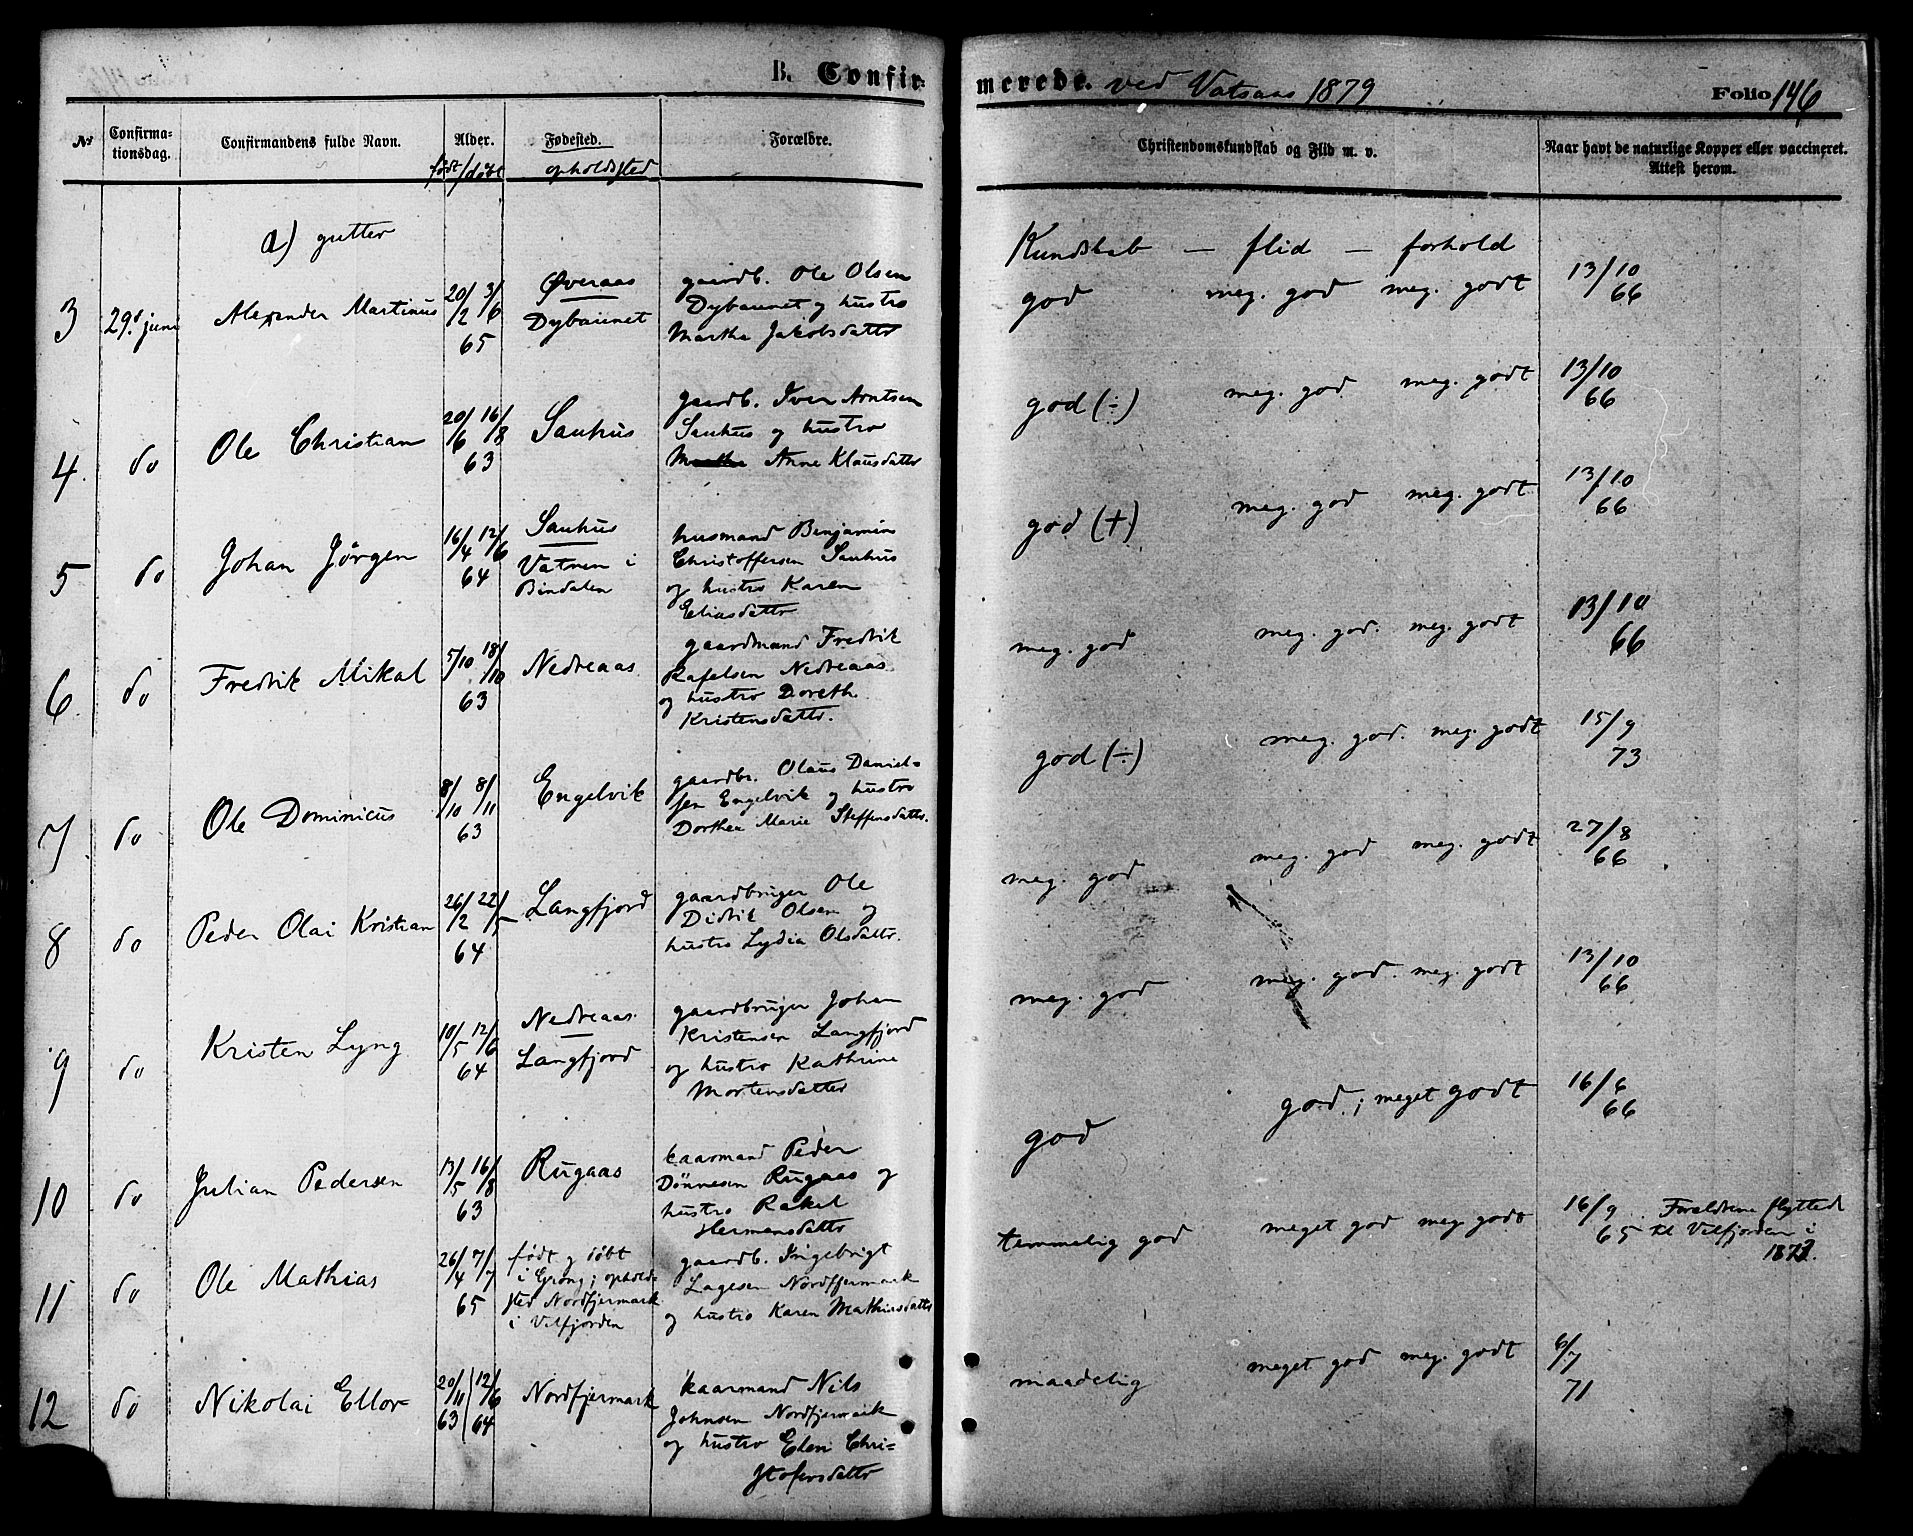 B. Confirmerede. ved Vatsaas 1879 Folio 146
No
Confirmationsdag.
Confirmandens fulde Navn.
Alder.
født/døbt
Fødested.
opholdssted
Forældre.
Christendomskundskab og Flid m. v.
Naar havt de naturlige Kopper eller vaccineret.
Attest herom.
a) gutter
Kundskab — flid — forhold
3 29d juni Alexander Martinus 20/2 3/6
65
Øveraas
Dybaunet
gaardb. Ole Olsen
Dybaunet og hustro
Martha Jakobsdatter
god meg. god meg. godt 13/10
66
4 do Ole Christian 20/6 16/8
63
Sauhus
gaardb. Iver Arntsen
Sauhus og hustro
Martha Anne Klausdatter
god (÷) meg. god meg. godt 13/10
66
5 do Johan Jørgen 16/4 12/6
64
Sauhus
Vatnen i
Bindalen
husmand Benjamin
Christoffersen Sauhus
og hustro Karen
Eliasdatter
god (+) meg. god meg. godt 13/10
66
6 do Fredrik Mikal 5/10 18/10
63
Nedreaas
gaardmand Fredrik
Rafelsen Nedreaas
og hustro Doreth.
Kristensdatter.
meg. god meg. god. meg. godt 13/10
66
7 do Ole Dominicus 8/10 8/11
63
Engelvik
gaardbr. Olaus Daniel-
sen Engelvik og hustro
Dorthea Marie Steffensdatter.
god (÷) meg. god. meg. godt 15/9
73
8 do Peder Olai Kristian 26/2 22/5
64
Langfjord
gaardbruger Ole
Didrik Olsen og
hustro Lydia Olsdatter.
meg. god meg. god meg. godt 27/8
66
9 do Kristen Lyng 10/5 12/6
64
Nedreaas.
Langfjord
gaardbruger Johan
Kristensen Langfjord
og hustro Kathrine
Mortensdatter
meg. god meg. god. meg. godt 13/10
66
10 do Julian Pedersen 13/5 16/8
63
Rugaas
kaarmand Peder
Dønnesen Rugaas og
hustro Rakel
Hermensdatter
god god; meget godt 16/6
66
11 do Ole Mathias 26/4 7/7
65
født og døbt
i Grong; ophold-
sted Nordfjermark
i Velfjorden
gaardb. Ingebrigt
Lagesen Nordfjermark
og hustro Karen Mathiasdatter
temmelig god meget god meg godt 16/9
65
Forældrene flyttede
til Velfjorden i
1873.
12 do Nikolai Ellor 20/11 12/6
63 64
Nordfjermark
kaarmand Nils
Johnsen Nordfjermark
og hustro Elen Chri-
stofersdatter
maadelig meget god meg. godt 6/7
71